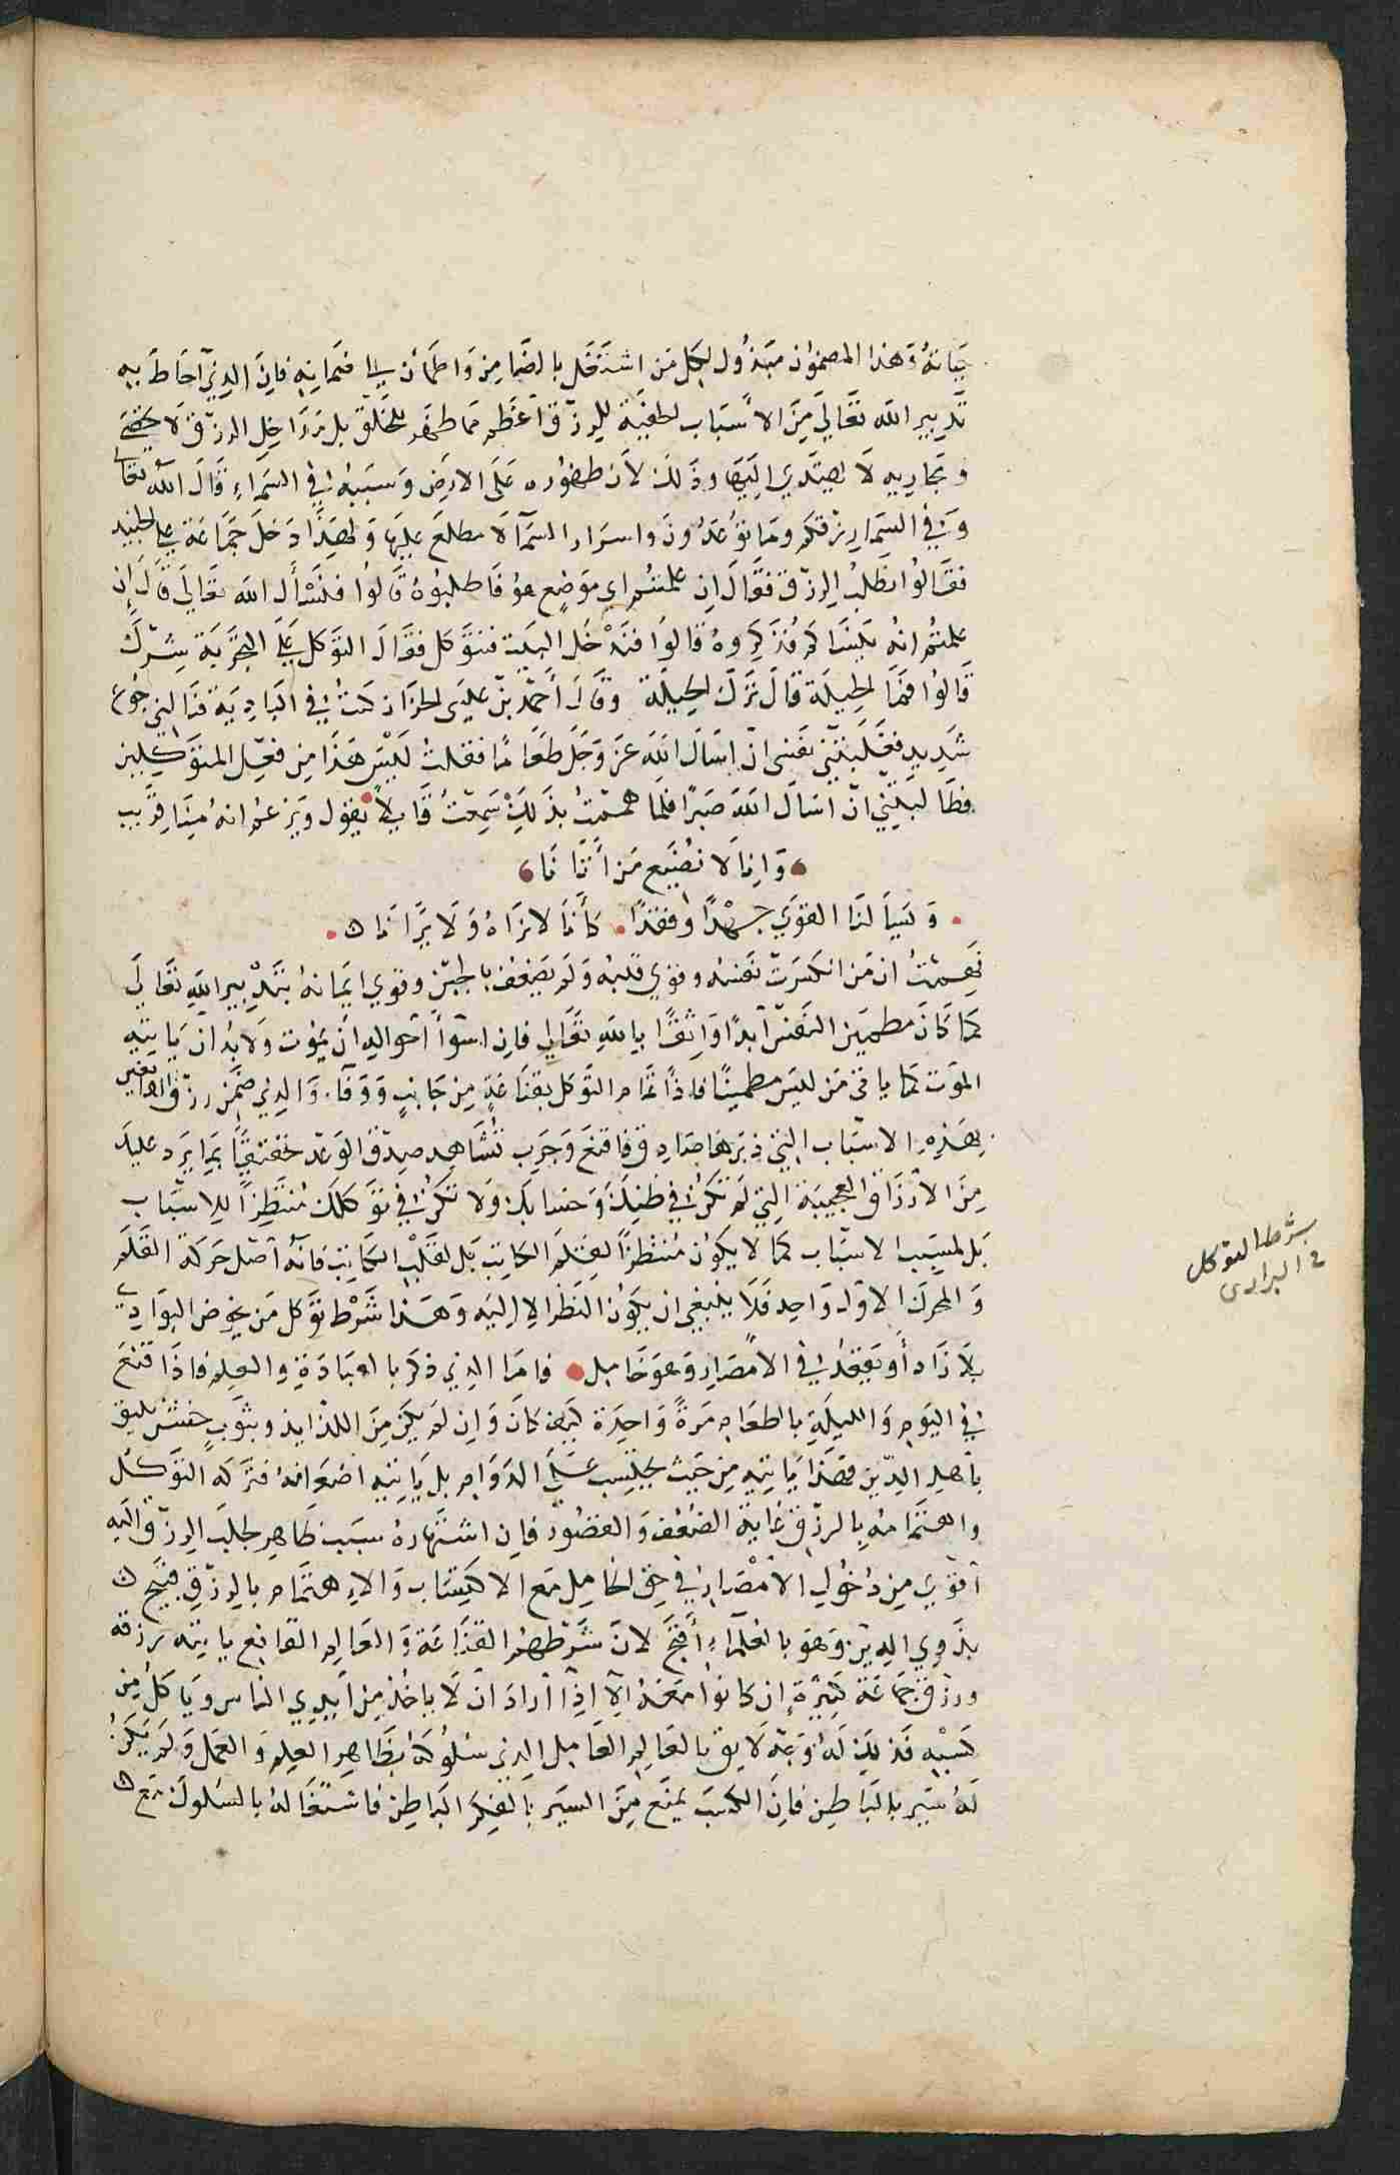 حياته وهذا المضمون مبذول لكل من اشتغل بالضامن واطمأن الى ضمانه فان الذي احاط به
تدبير الله تعالى من الاسباب الخفية للرزق اعظم مما ظهر للخلق بل مداخل الرزق لا تحصى
ومجاريه لا يهتدي اليها وذلك لان ظهوره على الارض وسببه في السماء قال الله تعالى
وفي السماء رزقكم وما توعدون واسرار السماء لا يطلع عليها ولهذا دخل جماعة على الجنيد
فقالوا نطلب الرزق فقال ان علمتم اي موضع هو فاطلبوه قالوا فنسأل الله تعالى قال ان
علمتم انه ينساكم فذكروه قالوا فندخل البيت فنتوكل فقال التوكل على التجربة شرك
قالوا فما الحيلة قال ترك الحيلة وقال احمد بن عيسى الخراز كنت في البادية فنالني جوع
شديد فغلبتني نفسي ان اسأل الله عز وجل طعاما فقلت ليس هذا من فعل المتوكلين
فطالبتني ان اسأل الله صبرا فلما هممت بذلك سمعت قايلا يقول ويزعم انه منا قريب
وانا لا نضيع من اتانا
ويسألنا القوي جهدا وفقدا كأنا لا نراه ولا يرانا
فهمت ان من انكسرت نفسه وقوي قلبه ولم يضعف بالجبن وقوي ايمانه بتدبير الله تعالى
كما كان مطمين النفس ابدا واثقا بالله تعالى فان اسوأ احواله ان يموت ولا بد ان ياتيه
الموت كما ياتي من ليس مطمينا فاذا تمام التوكل بقناعة من جانب ووفاء والذي ضمن رزق القانعين
بهذه الاسباب التي دبرها صادق فاقنع وجرب تشاهد صدق الوعد تحقيقا بما يرد عليك
من الارزاق العجيبة التي لم تكن في ظنك وحسابك ولا تكن في توكلك منتظرا للاسباب
بل لمسبب الاسباب كما لا يكون منتظرا لقلم الكاتب بل لقلب الكاتب فانه اصل حركة القلم
والمحرك الاول واحد فلا ينبغي ان يكون النظر الا اليه وهذا شرط توكل من يخوض البوادي
بلا زاد أو يقعد في الامصار وهو خامل فاما الذي ذكر بالعبادة والعلم فاذا قنع
في اليوم والليلة بالطعام مرة واحدة كيف كان وان لم يكن من اللذايذ وبثوب خشن يليق
باهل الدين فهذا ياتيه من حيث يحتسب على الدوام بل ياتيه اضعافه فتركه التوكل
واهتمامه بالرزق غاية الضعف والقصور فان اشتهاره سبب ظاهر لجلب الرزق اليه
اقوى من دخول الامصار في حق الخامل مع الاكتساب والاهتمام بالرزق قبيح
بذوي الدين وهو بالعلماء أقبح لان شرطهم القناعة والعالم القانع ياتيه رزقه
ورزق جماعة كثيرة إن كانوا معه الا اذا اراد ان لا ياخذ من ايدي الناس وياكل من
كسبه فذلك له وجه لايق بالعالم العامل الذي سلوكه بظاهر العلم والعمل ولم يكن
له سير بالباطن فان الكسب يمنع من السير بالفكر الباطن فاشتغاله بالسلوك مع
شرط التوكل
في البرارى